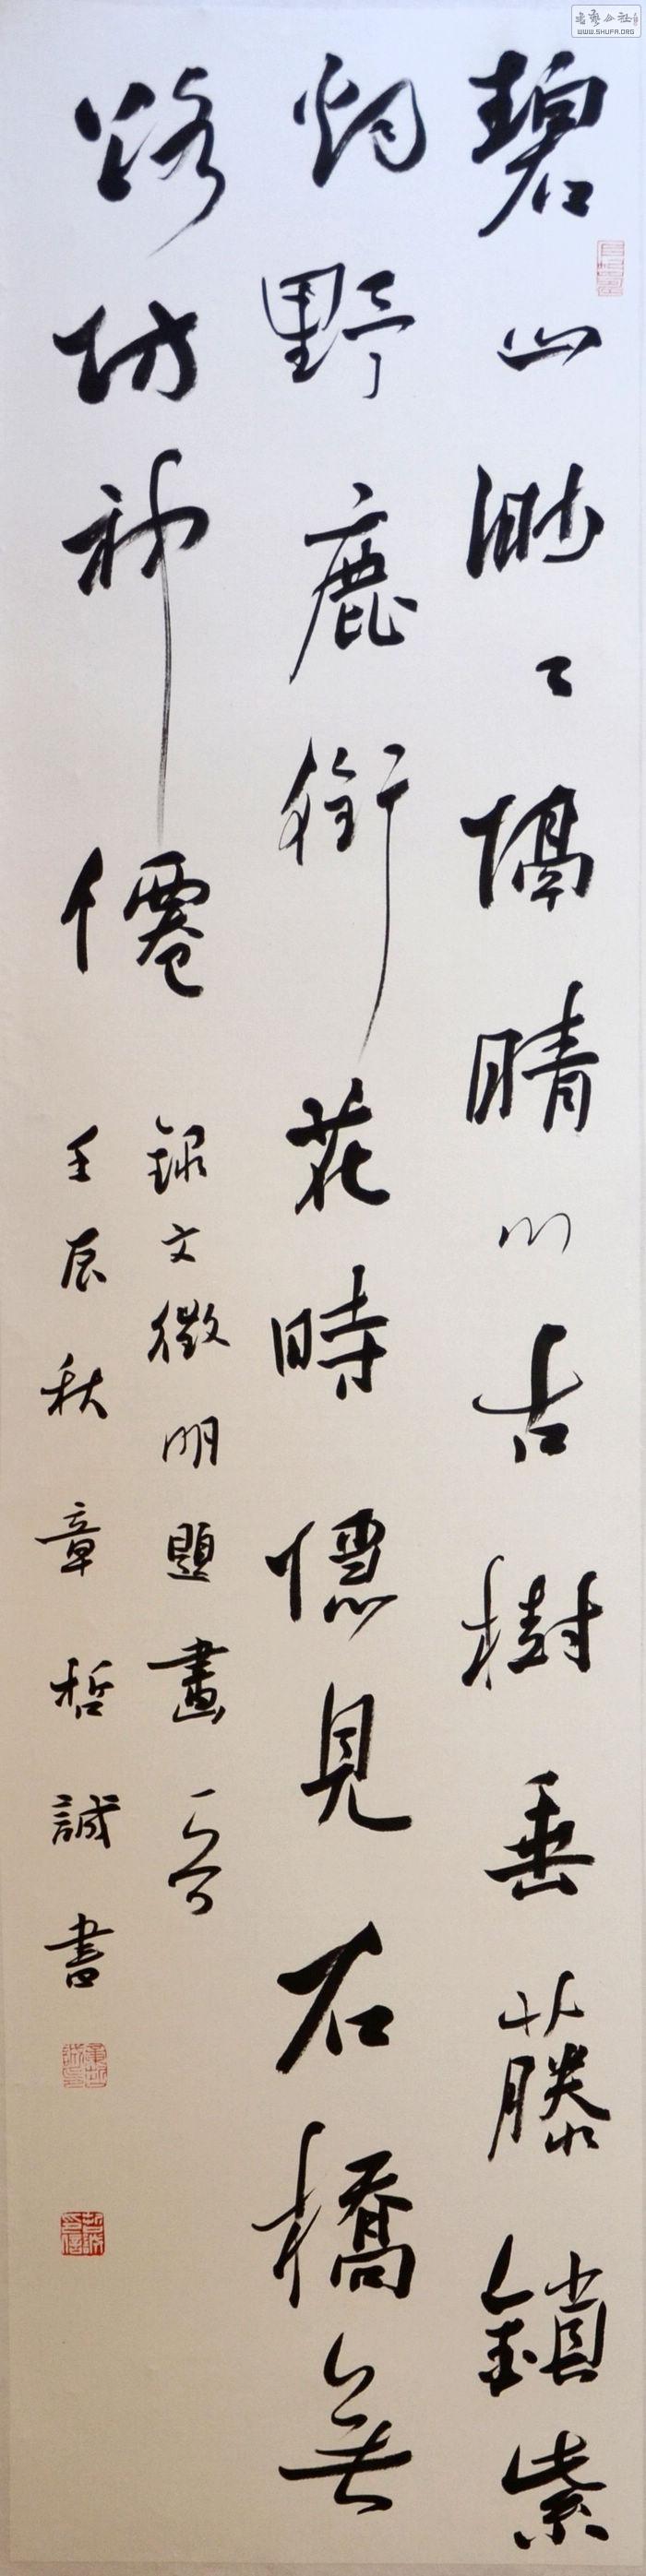 碧山渺々隔晴川古樹垂藤鎖紫
烟野鹿銜花時隱見石橋無
路訪神僊
錄文徵明題畫一首
壬辰秋章哲誠書
WWW.SHUFA.ORG